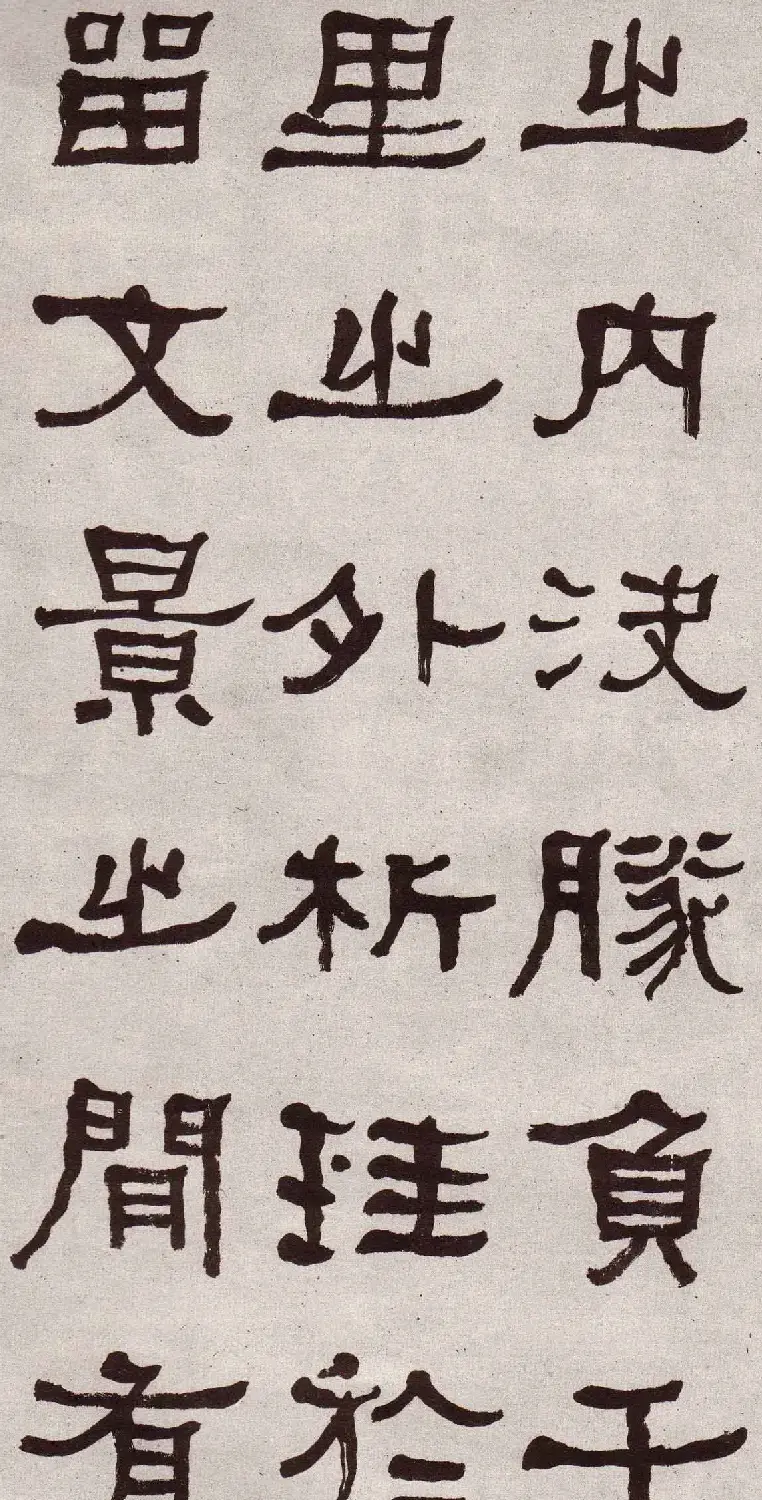 之内決勝負千
里之外析珪於
留文景之間有